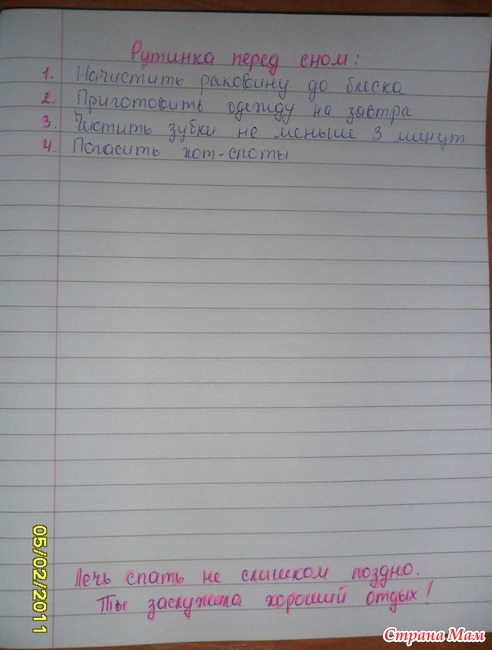 Рутинка перед сном:
1. Начистить раковину до блеска
2. Приготовить одежду на завтра
3. Чистить зубки не меньше 3 минут
4. Погасить хот-споты
Лечь спать не слишком поздно.
Ты заслужила хороший отдых!
05/02/2011
Страна Мам